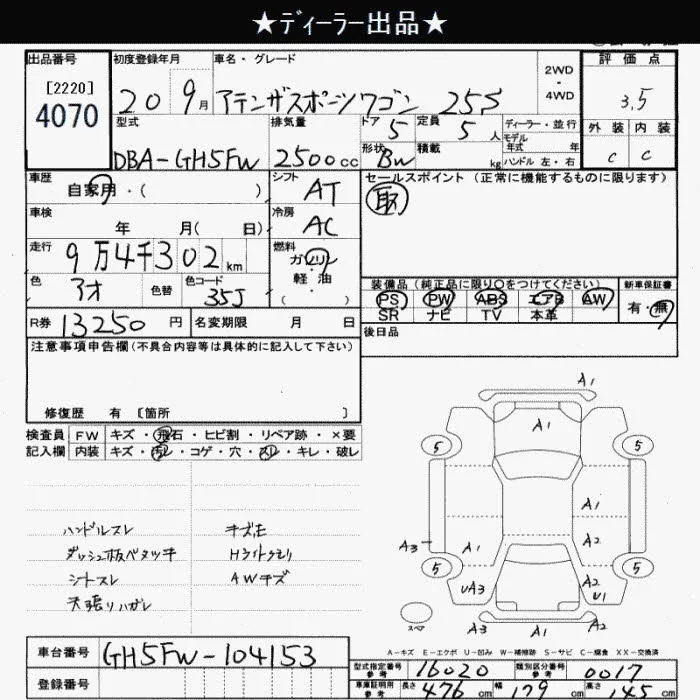 ★ディーラー出品★
出品番号 初度登録年月 車名・グレード 2WD・4WD 評価点
[2220]
4070
20 9月 アテンザスポーツワゴン 25S 3.5
型式 排気量 ドア 5 定員 5人 ディーラー・並行 外装 内装
モデル年式 年
DBA-GH5FW 2500cc 形状 BW 積載 kg ハンドル 左・右 C C
車歴 自家用・( ) シフト AT セールスポイント (正常に機能するものに限ります)
取
車検 年 月( 日) 冷房 AC
走行 9万4千302km 燃料 ガソリン 軽油 ( ・ )
色 アオ 色替 色コード 35J
装備品 (純正品に限り○をつけてください) 新車保証書
PS PW ABS エアB AW 有・無
SR ナビ TV 本革
R券 13250円 名変期限 月 日 後日品
注意事項申告欄 (不具合内容等は具体的に記入して下さい)
修復歴 有 [箇所 ]
検査員 FW キズ・飛石・ヒビ割・リペア跡・×要
記入欄 内装 キズ・汚レ・コゲ・穴・スレ・キレ・破レ
ハンドルスレ キズ、E
ダッシュ板ベタツキ Hライトクモリ
シートスレ AWキズ
天張りハガレ
A1
A1
5 5
A1
A3 A1 A2
5 5
UA3 A2
U1
スペア A3 A1 A2
A-キズ E-エクボ U-凹み W-補修跡 S-サビ C-腐食 XX-交換済
車台番号 GH5FW-104153
登録番号
型式指定番号 参考 16020 類別区分番号 参考 0017
車庫証明用 参考 長さ 476cm 幅 179cm 高さ 145cm